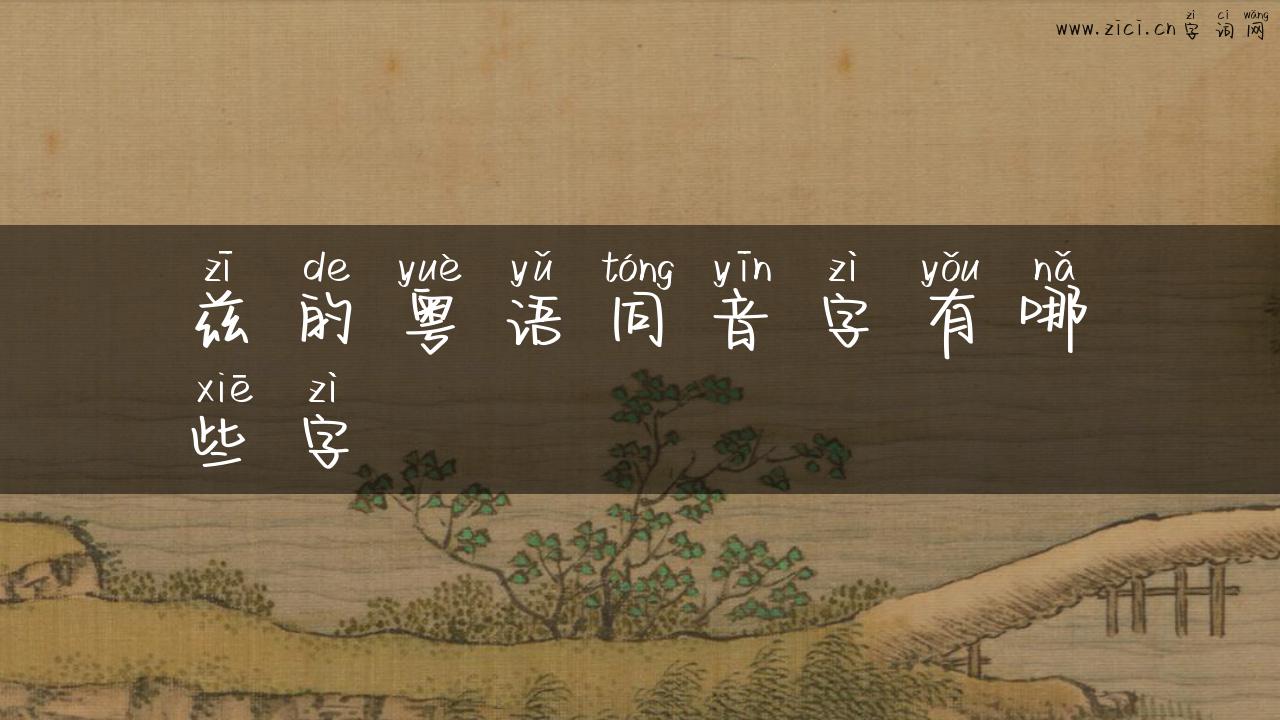 zì cí wǎng
www.zici.cn字词网
zī de yuè yǔ tóng yīn zì yǒu nǎ
兹的粤语同音字有哪
xiē zì
些字